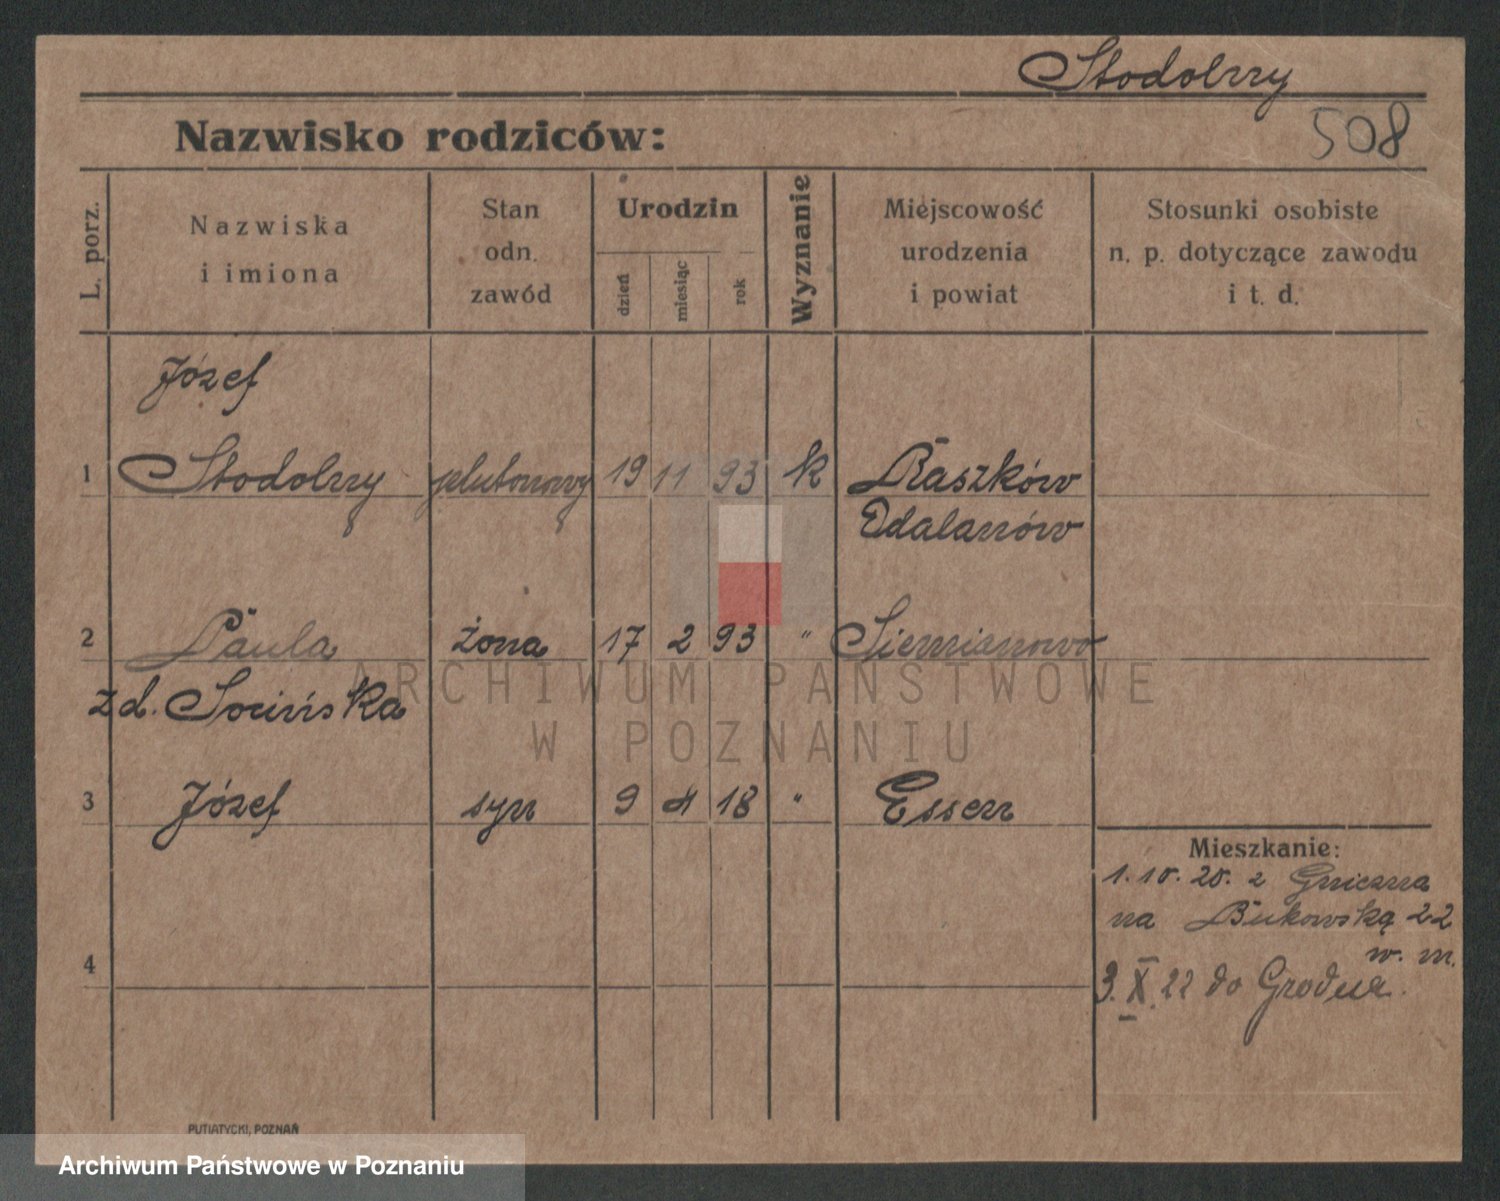 Stodolny
508
Nazwisko rodziców:
L. porz.
Nazwiska
i imiona
Stan
odn.
zawód
Urodzin
dzień
miesiąc
rok
Wyznanie
Miejscowość
urodzenia
i powiat
Stosunki osobiste
n. p. dotyczące zawodu
i t. d.
Józef
1 Stodolny plutonowy 19 11 93 k Raszków
Odalanów
2 Paula żona 17 2 93 " Siemianowo
z d. Socińska
3 Józef syn 9 4 18 " Essen
4
Mieszkanie:
1. 10. 20. z Gniezna
na Bukowską 22
w. m.
3. X. 22 do Grodna.
PUTIATYCKI, POZNAŃ
ARCHIWUM PAŃSTWOWE
W POZNANIU
Archiwum Państwowe w Poznaniu